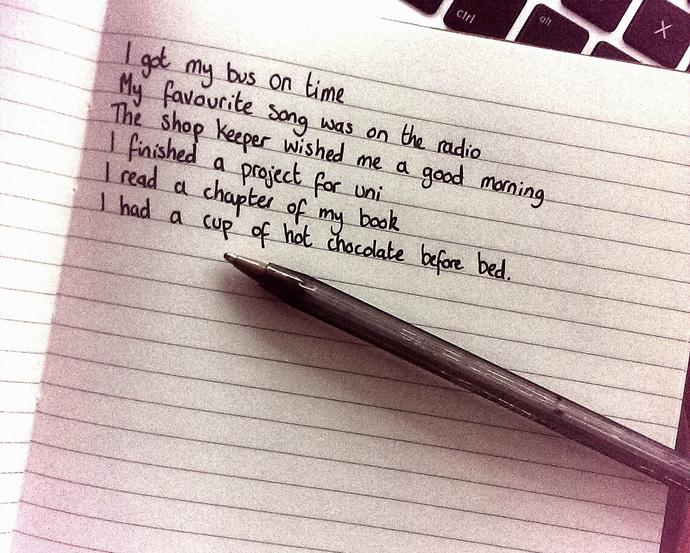 ctrl
alt
X
I got my bus on time
My favourite song was on the radio
The shop keeper wished me a good morning
I finished a project for uni
I read a chapter of my book
I had a cup of hot chocolate before bed.